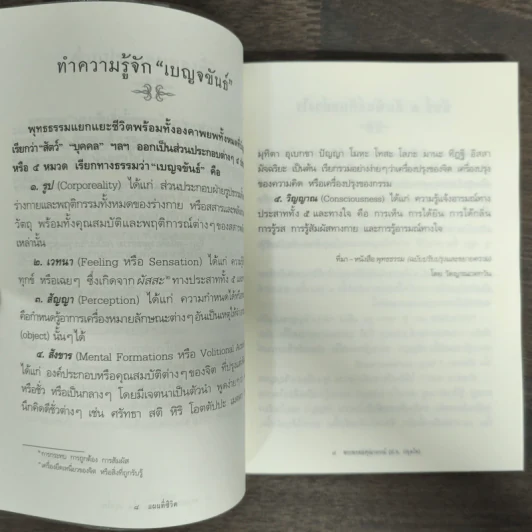 ทำความรู้จัก "เบญจขันธ์"
พุทธธรรมแยกแยะชีวิตพร้อมทั้งองคาพยพทั้งหมดที่
เรียกว่า"สัตว์" "บุคคล" ฯลฯ ออกเป็นส่วนประกอบต่างๆ ๕
หรือ ๕ หมวด เรียกทางธรรมว่า "เบญจขันธ์" คือ
๑. รูป (Corporeality) ได้แก่ ส่วนประกอบฝ่ายรูปธรรม
ร่างกายและพฤติกรรมทั้งหมดของร่างกาย หรือสสารและพลัง
วัตถุ พร้อมทั้งคุณสมบัติและพฤติการณ์ต่างๆของสสาร
เหล่านั้น
๒. เวทนา (Feeling หรือ Sensation) ได้แก่
ทุกข์ หรือเฉยๆ ซึ่งเกิดจากผัสสะ ทางประสาททั้ง ๕
๓. สัญญา (Perception) ได้แก่ ความกำหนดได้
คือกำหนดรู้อาการเครื่องหมายลักษณะต่างๆอันเป็นเหตุให้
(object) นั้นๆได้
๔. สังขาร (Mental Formations หรือ Volitional
ได้แก่ องค์ประกอบหรือคุณสมบัติต่างๆของจิต
หรือชั่ว หรือเป็นกลางๆ โดยมีเจตนาเป็นตัวนำ พูดง่ายๆ
นึกคิดดีชั่วต่างๆ เช่น ศรัทธา สติ หิริ โอตตัปปะ
การกระทบ การถูกต้อง การสัมผัส
เครื่องยึดเหนี่ยวของจิต หรือสิ่งที่ถูกรับรู้
๘ แผนที่ชีวิต
มุทิตา อุเบกขา ปัญญา โมหะ โทสะ โลภะ มานะ ทิฏฐิ อิสสา
มัจฉริยะ เป็นต้น เรียกรวมอย่างง่ายๆว่าเครื่องปรุงของจิต เครื่องปรุง
ของความคิด หรือเครื่องปรุงของกรรม
๕. วิญญาณ (Consciousness) ได้แก่ ความรู้แจ้งอารมณ์ทาง
ประสาททั้ง ๕ และทางใจ คือ การเห็น การได้ยิน การได้กลิ่น
การรู้รส การรู้สัมผัสทางกาย และการรู้อารมณ์ทางใจ
ที่มา - หนังสือ พุทธธรรม (ฉบับปรับปรุงและขยายความ)
โดย วัดญาณเวศกวัน